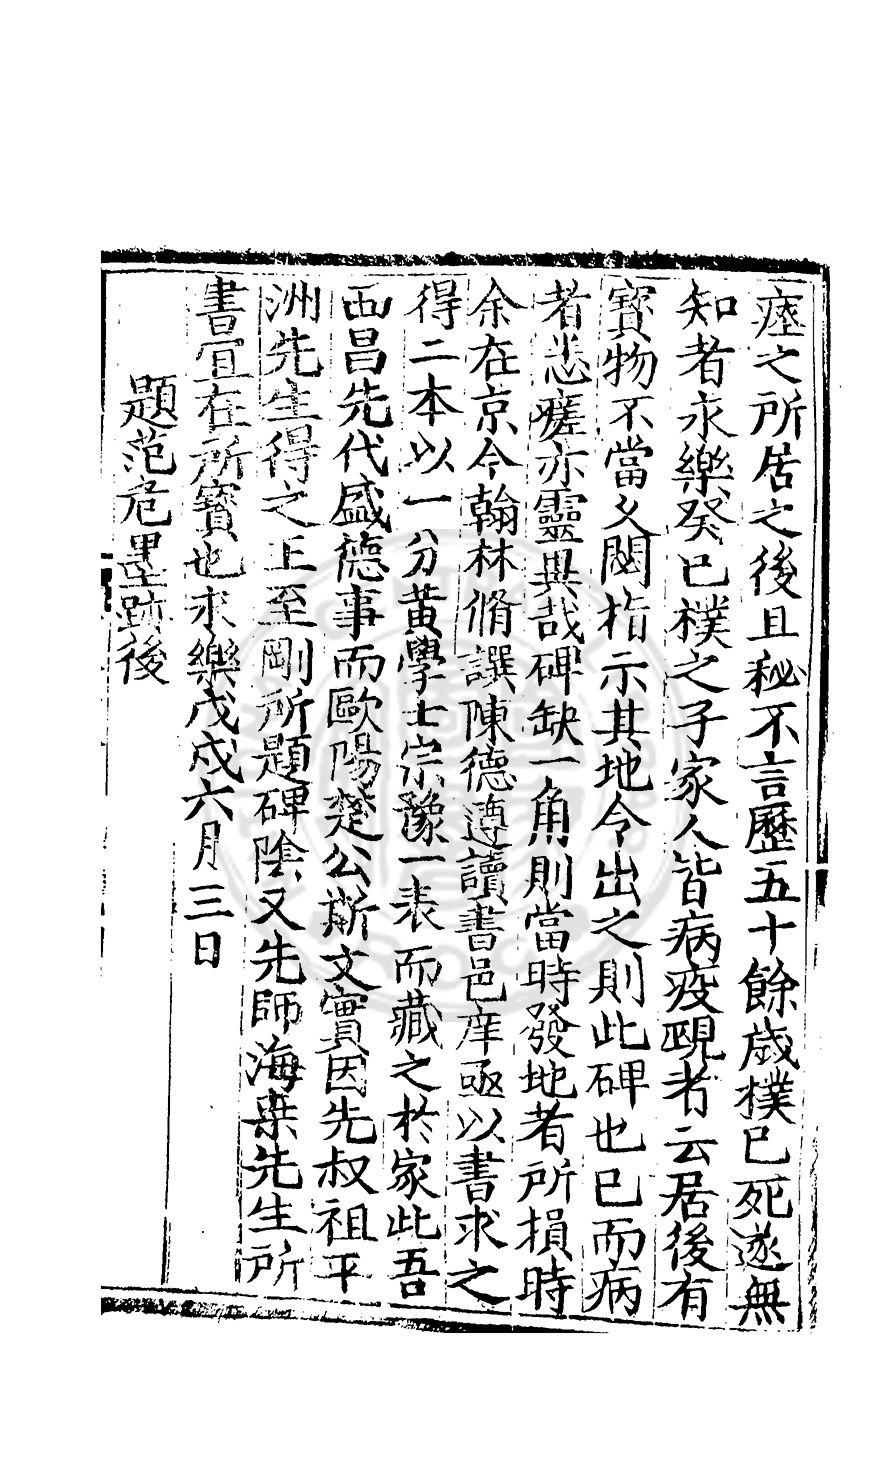 瘞之所居之後且秘不言歷五十餘歲樸已死遂無
知者永樂癸巳樸之子家人皆病疫覡者云居後有
寳物不當乆閟指示其地令出之則此碑也已而病
者悉瘥亦靈異哉碑缺一角則當時發地者所損時
余在京今翰林脩譔陳德遵讀書邑庠亟以書求之
得二本以一分黄學士宗豫一表而藏之於家此吾
西昌先代盛德事而歐陽楚公斯文實因先叔祖平
洲先生得之王至剛所題碑陰又先師海桒先生所
書宜在所寳也永樂戊戌六月三日
題范危墨跡後